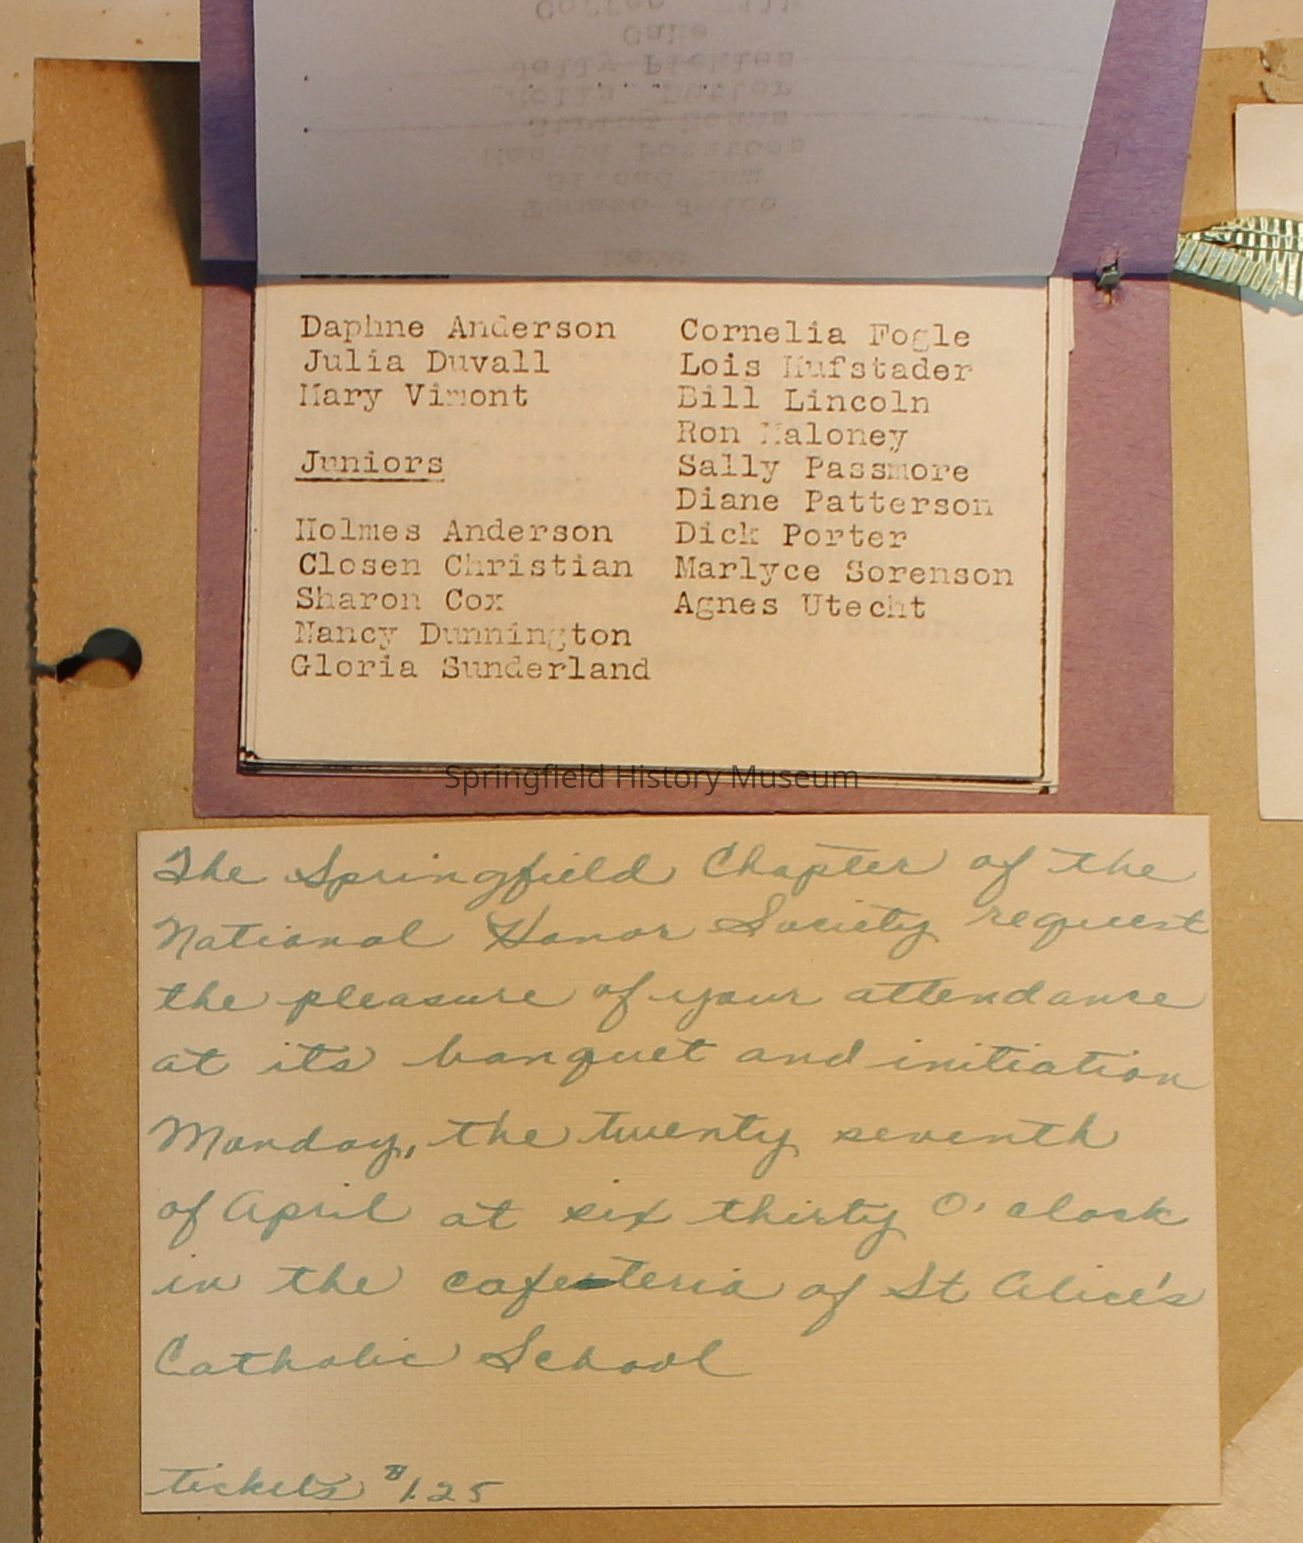 Coffee Milk
Cake
Jelly Pickles
Rolls, Butter
String Beans
Mashed Potatoes
Sliced Ham
Tomato Juice
Menu
Daphne Anderson
Julia Duvall
Mary Vimont
Juniors
Holmes Anderson
Closen Christian
Sharon Cox
Nancy Dunnington
Gloria Sunderland
Cornelia Fogle
Lois Hufstader
Bill Lincoln
Ron Maloney
Sally Passmore
Diane Patterson
Dick Porter
Marlyce Sorenson
Agnes Utecht
Springfield History Museum
The Springfield Chapter of the
National Honor Society request
the pleasure of your attendance
at its banquet and initiation
Monday, the twenty seventh
of April at six thirty O'clock
in the cafeteria of St Alice's
Catholic School
tickets $1.25